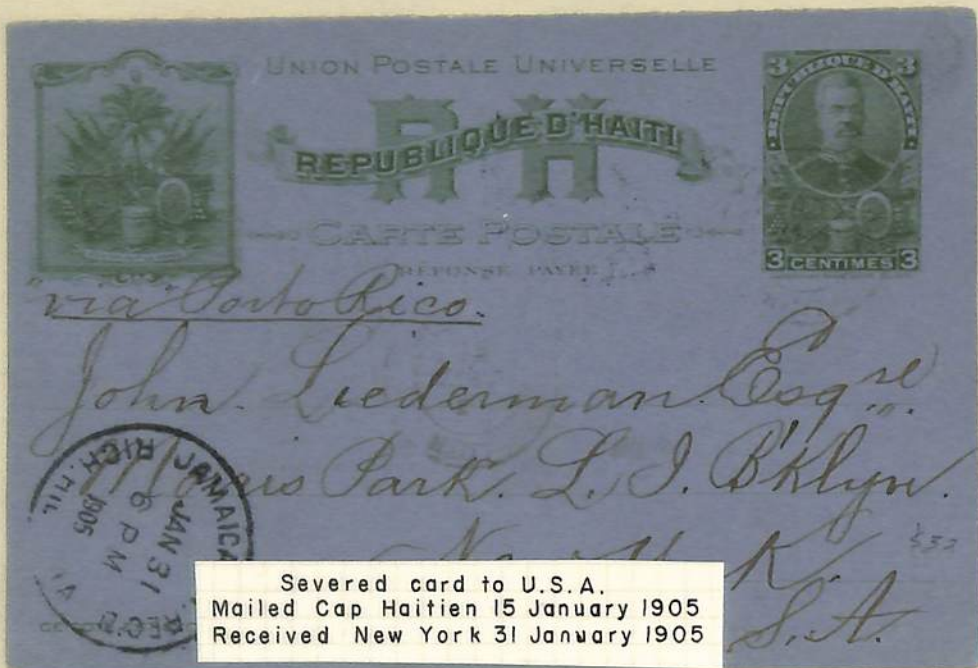 UNION POSTALE UNIVERSELLE
RH
REPUBLIQUE D'HAITI
CARTE POSTALE
REPONSE PAYEE
3 3
REPUBLIQUE D'HAITI
3 CENTIMES 3
via Porto Rico.
John. Liederman. Esqre
Morris Park. L. I. B'klyn.
S. A.
$32
JAMAICA
RICH. HILL
JAN 31
6 PM
1905
REC'D.
Severed card to U.S.A.
Mailed Cap Haitien 15 January 1905
Received New York 31 January 1905